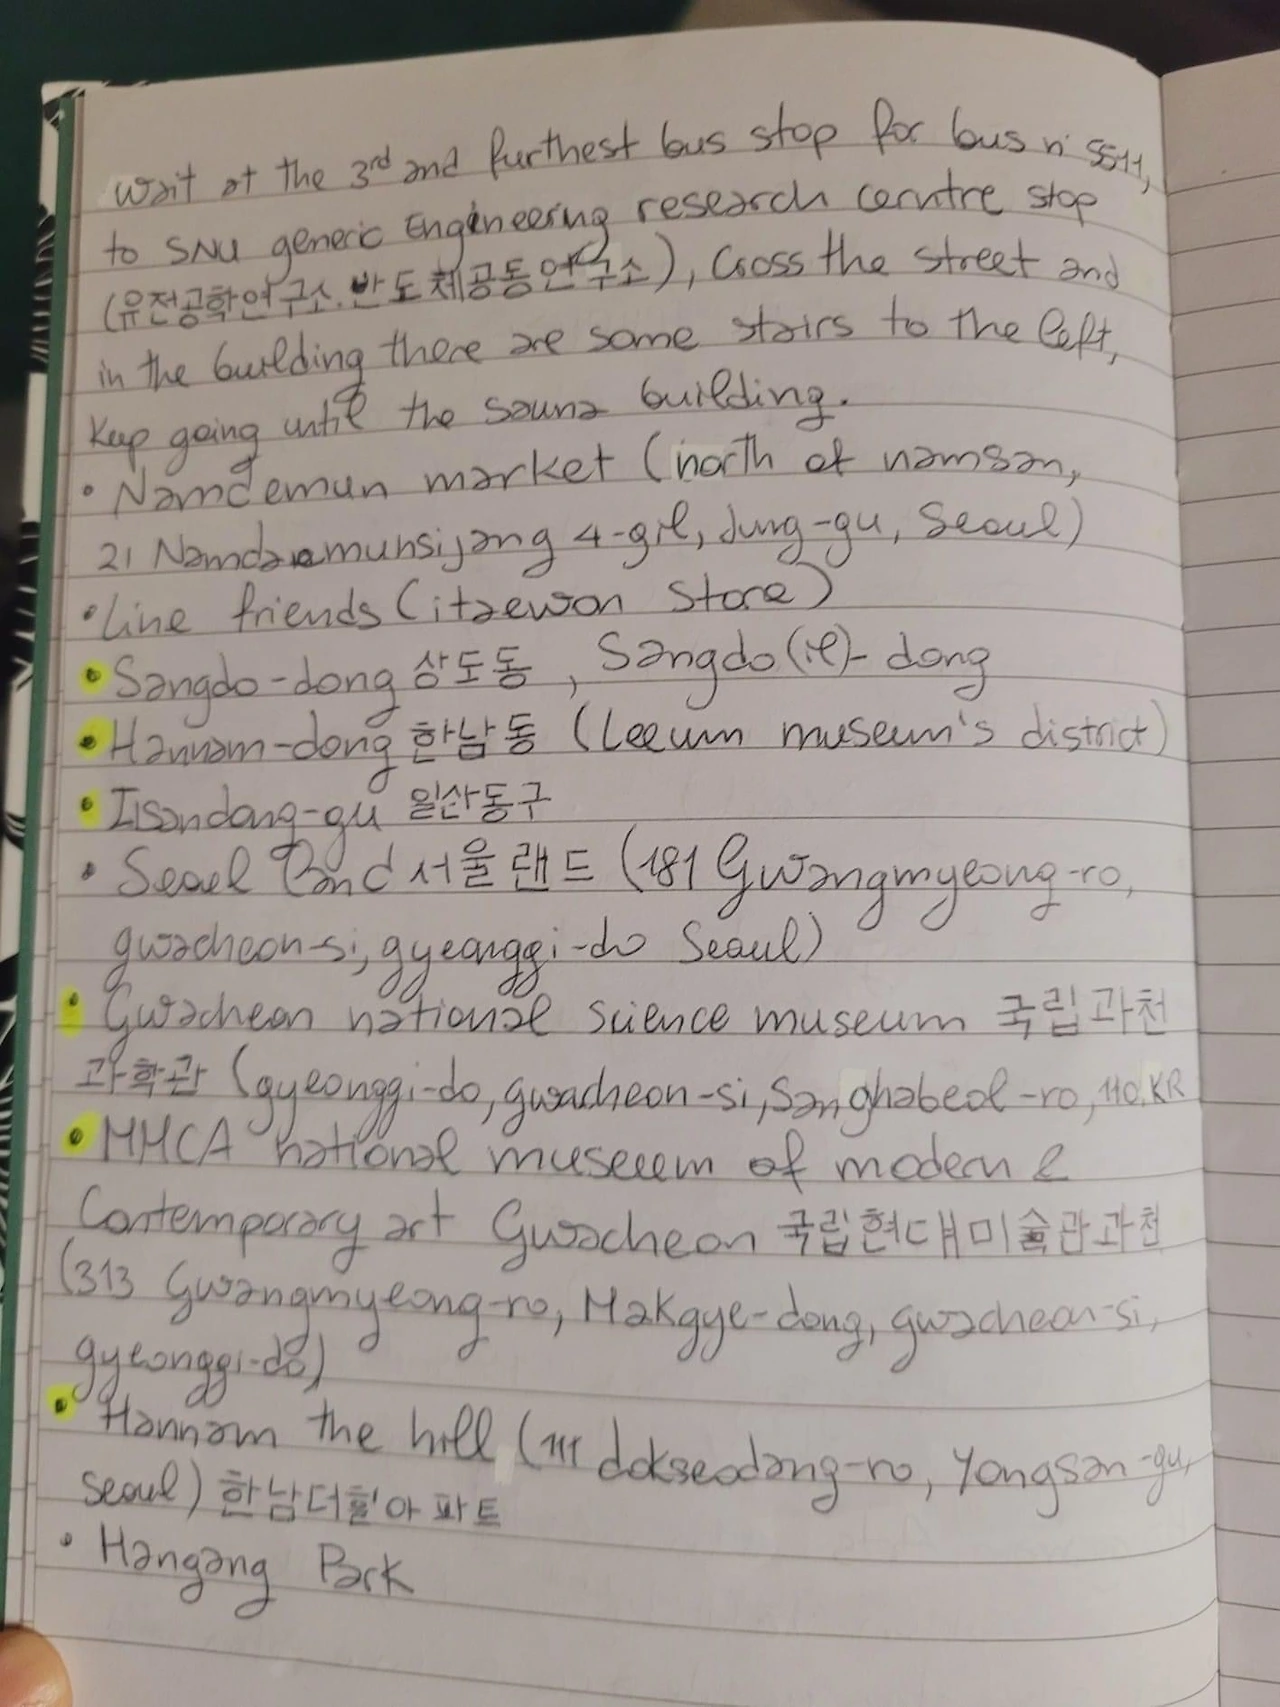 wait at the 3rd and furthest bus stop for bus n° 5511,
to SNU generic Engineering research cerntre stop
(유전공학연구소.반도체공동연구소), Cross the street and
in the building there are some stairs to the left,
Keep going until the sauna building.
• Namdemun market (north of namsan,
21 Namdaemunsijang 4-gil, Jung-gu, Seoul)
• Line friends (itaewon store)
• Sangdo-dong 상도동, Sangdo(il)-dong
• Hannam-dong 한남동 (Leeum museum's district)
• Ilsandong-gu 일산동구
• Seoul Land 서울랜드 (181 Gwangmyeong-ro,
gwacheon-si, gyeonggi-do Seoul)
• Gwacheon national science museum 국립과천
과학관 (gyeonggi-do, gwacheon-si, Sanghabeol-ro, 110, KR
• MMCA national museum of modern &
Contemporary art Gwacheon 국립현대미술관과천
(313 Gwangmyeong-ro, Makgye-dong, gwacheon-si,
gyeonggi-do)
• Hannam the hill (111 dokseodang-ro, Yongsan-gu,
seoul) 한남더힐아파트
• Hangang Park